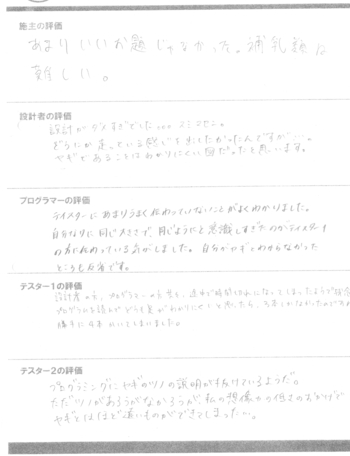 施主の評価
あまりいいお題じゃなかった。補乳類は
難しい。
設計者の評価
設計がダメすぎでした... スミマセン。
どうにか走っている感じを出したかったんですが…。
ヤギであることはわかりにくい図だったと思います。
プログラマーの評価
テイスターにあまりうまく伝わっていないことがよくわかりました。
自分なりに同じ大きさで、同じようにと意識しすぎたのがテイスター
の方に伝わっている気がしました。自分がヤギとわからなかった
ところも反省です。
テスター1の評価
設計者の方、プログラマーの方
プログラムを読んで
勝手に
テスター2の評価
プログラミングにヤギのツノの説明が抜けているようだ。
ただツノがあろうがなかろうが、私の想像力の低さのおかげで
ヤギとはほど遠いものができてしまった…。